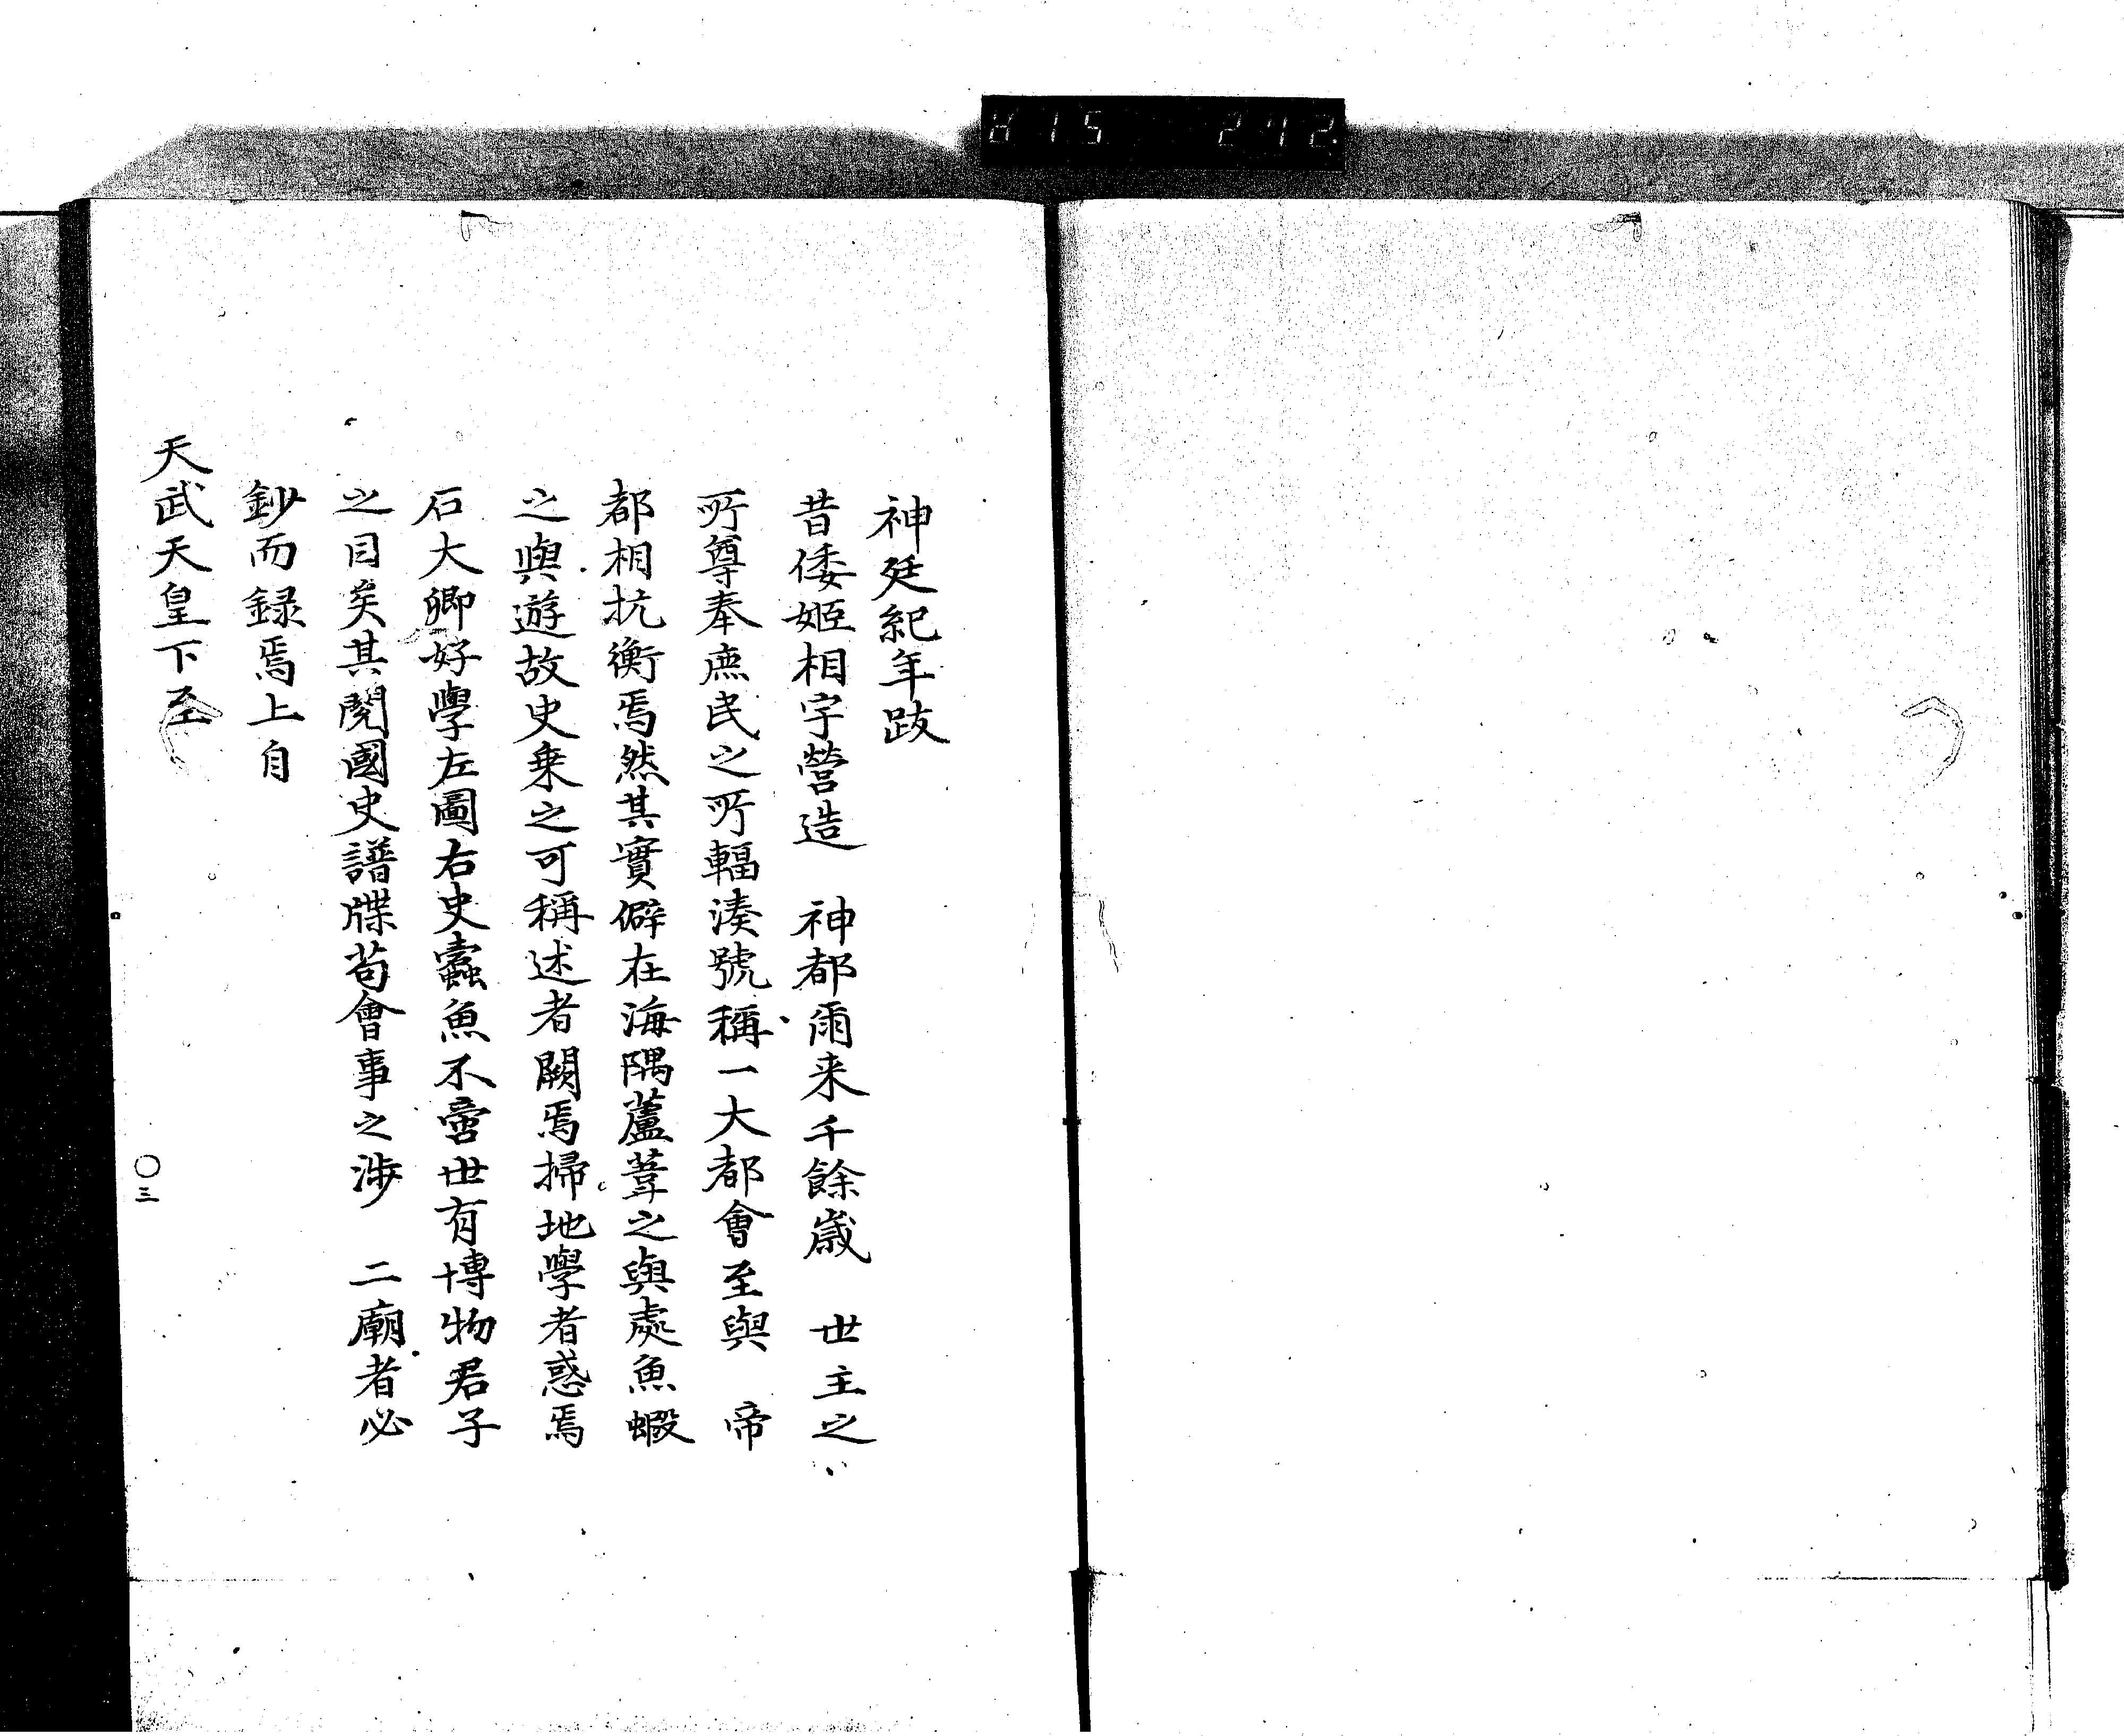 神廷紀年跋
昔倭姬相宇營造　神都爾来千餘歳　世主之
所尊奉庶民之所輻湊號稱一大都會至與　帝
都相抗衡焉然其實僻在海隅蘆葦之與處魚蝦
之與遊故史乗之可稱述者闕焉掃地學者惑焉
石大卿好學左圖右史蠹魚不啻世有博物君子
之目矣其閱國史譜牒苟會事之渉　二廟者必
鈔而録焉上自
天武天皇下至
〇三
815 242